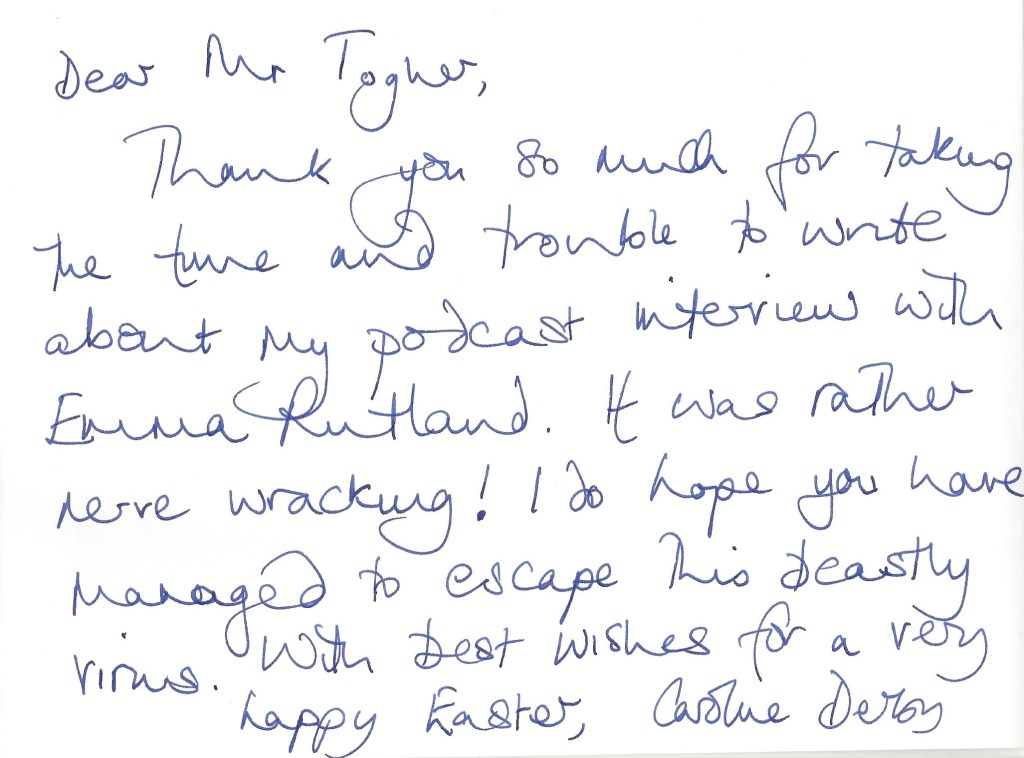 Dear Mr Togher,
Thank you so much for taking
the time and trouble to write
about my podcast interview with
Emma Rutland. It was rather
nerve wracking! I do hope you have
managed to escape this beastly
virus. With best wishes for a very
happy Easter, Caroline Derby